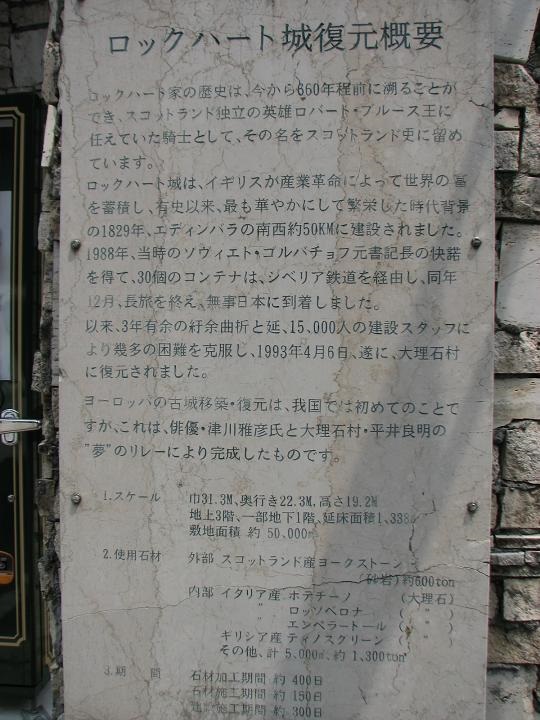 ロックハート城復元概要
ロックハート家の歴史は、今から660年程前に溯ることが
でき、スコットランド独立の英雄ロバート・ブルース王に
任えていた騎士として、その名をスコットランド史に留め
ています。
ロックハート城は、イギリスが産業革命によって世界の富
を蓄積し、有史以来、最も華やかにして繁栄した時代背景
の1829年、エディンバラの南西約50KMに建設されました。
1988年、当時のソヴィエト・ゴルバチョフ元書記長の快諾
を得て、30個のコンテナは、シベリア鉄道を経由し、同年
12月、長旅を終え、無事日本に到着しました。
以来、3年有余の紆余曲折と延、15,000人の建設スタッフに
より幾多の困難を克服し、1993年4月6日、遂に、大理石村
に復元されました。
ヨーロッパの古城移築・復元は、我国では初めてのことで
すが、これは、俳優・津川雅彦氏と大理石村・平井良明の
"夢"のリレーにより完成したものです。
1.スケール 巾31.3M、奥行き22.3M、高さ19.2M
地上3階、一部地下1階、延床面積1,338㎡
敷地面積 約 50,000㎡
2.使用石材 外部 スコットランド産ヨークストーン
(砂岩)約600ton
内部 イタリア産 ボテチーノ (大理石)
〃 ロッソベロナ ( 〃 )
〃 エンペラートール ( 〃 )
ギリシア産 ティノスグリーン ( 〃 )
その他、計 5,000㎡、約 1,300ton
3.期 間 石材加工期間 約 400日
石材施工期間 約 150日
建築施工期間 約 300日